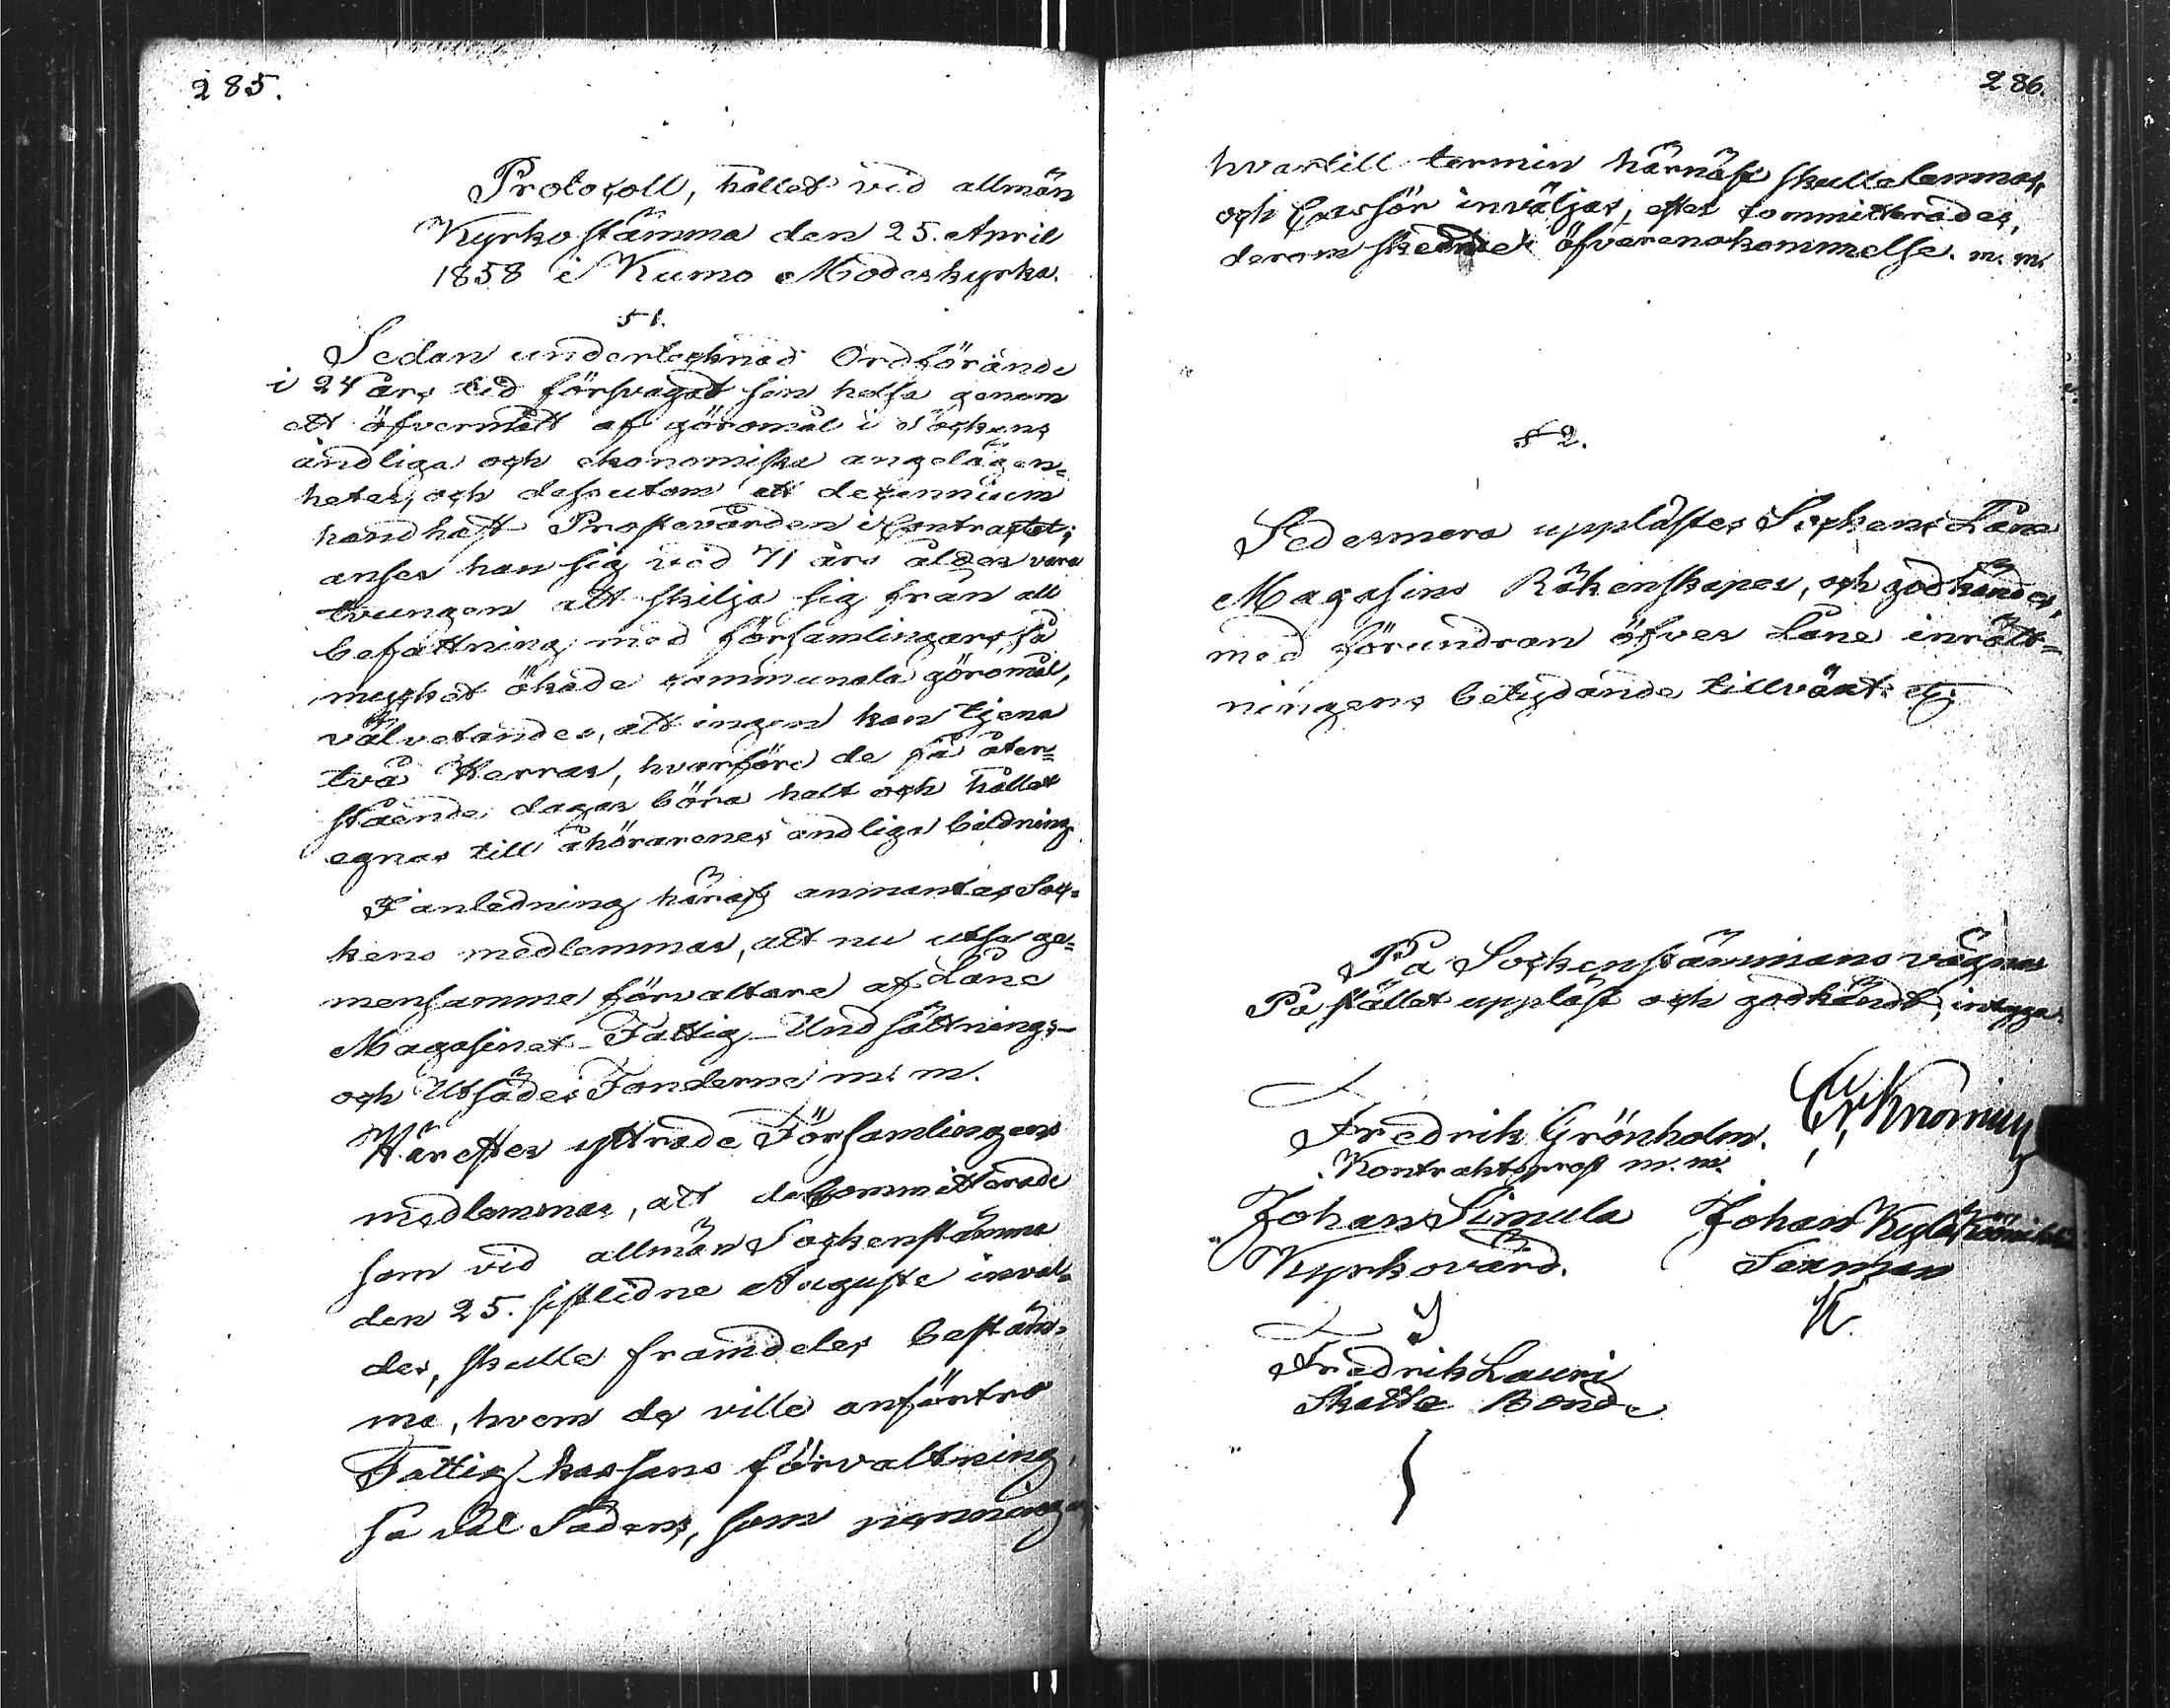 285.
Protocoll, hållet vid allmän
Kyrkostämma den 25. April
1858 i Kumo Moderkyrka.
§ 1.
Sedan undertecknad Ordförande
i 24 års tid försvagat sin helsa genom
ett öfvermått af göromål i Sockens
andliga och ekonomiska angelägen=
heter, och dessutom ett decennium
handhaft Prostevården i Contractet;
anser han sig vid 71 års ålder vara
tvungen att skilja sig från all
befattning med församlingars, så
mycket ökade communala göromål,
väl vetandes, att ingen kan tjena
två Herrar, hvarföre de få åter=
stående dagar böra helt och hållet
egnas till åhörarenes andliga bildning.
I anledning häraf anmantes Soc=
kens medlemmar, att nu utse ge=
mensamme förvaltare af Låne
Magasinet Fattig- Undsättnings-
och Utsädes Fonderne m. m.
Härefter yttrade Församlingens
medlemmar, att de Committerade
som vid allmän Sockenstämma
den 25. sistledne Augusti inval=
des, skulle framdeles bestäm=
ma, hvem de ville anförtro
Fattig kassans förvaltning,
så väl Sädens, som penningar
286.
hvartill termin härnäst skulle lemnas,
och Cassör inväljas, efter Committerades,
derom skeende öfverenskommelse. m. m.
§ 2.
Sedermera upplästes Sockens Låne
Magasins Räkenskaper, och godkändes,
med förundran öfver Låne inrätt=
ningens betydande tillväxt etc
På Sockenstämmans vägnar
På stället uppläst och godkändt, intyga
Fredrik Grönholm.
Kontraktsprost m. m.
Johan Simula Johan Kylä
Kyrkovärd. Sexman
K.
Fredrik Lauri
Skatte Bonde